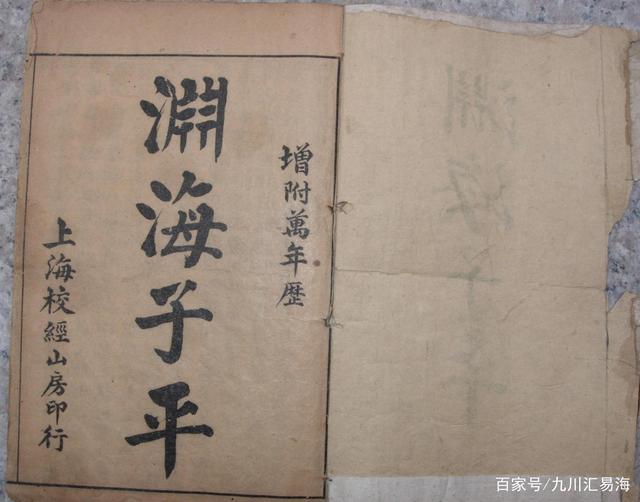 增附萬年歷
淵海子平
上海校經山房印行
百家号/九川汇易海